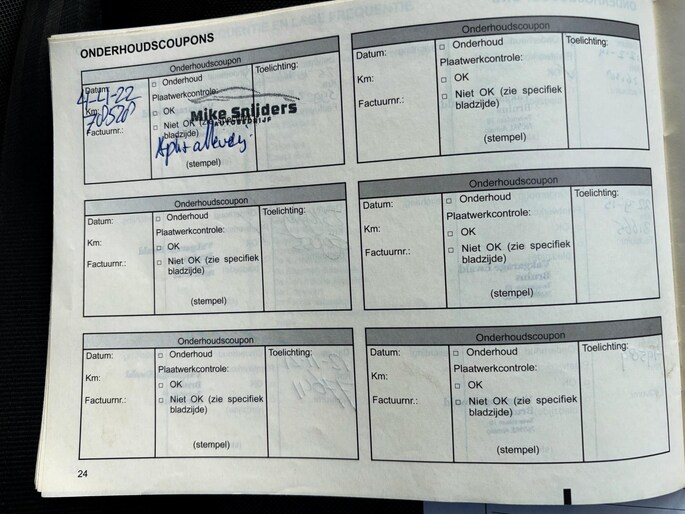 ONDERHOUDSCOUPONS
Onderhoudscoupon
Datum: 
Km:
Factuurnr.:
□ Onderhoud
Plaatwerkcontrole:
□ OK
□ Niet OK (zie specifiek
bladzijde)
(stempel)
Toelichting:
Mike Snijders
AUTOBEDRIJF
Onderhoudscoupon
Datum:
Km:
Factuurnr.:
□ Onderhoud
Plaatwerkcontrole:
□ OK
□ Niet OK (zie specifiek
bladzijde)
(stempel)
Toelichting:
Onderhoudscoupon
Datum:
Km:
Factuurnr.:
□ Onderhoud
Plaatwerkcontrole:
□ OK
□ Niet OK (zie specifiek
bladzijde)
(stempel)
Toelichting:
Onderhoudscoupon
Datum:
Km:
Factuurnr.:
□ Onderhoud
Plaatwerkcontrole:
□ OK
□ Niet OK (zie specifiek
bladzijde)
(stempel)
Toelichting:
Onderhoudscoupon
Datum:
Km:
Factuurnr.:
□ Onderhoud
Plaatwerkcontrole:
□ OK
□ Niet OK (zie specifiek
bladzijde)
(stempel)
Toelichting:
Onderhoudscoupon
Datum:
Km:
Factuurnr.:
□ Onderhoud
Plaatwerkcontrole:
□ OK
□ Niet OK (zie specifiek
bladzijde)
(stempel)
Toelichting:
24